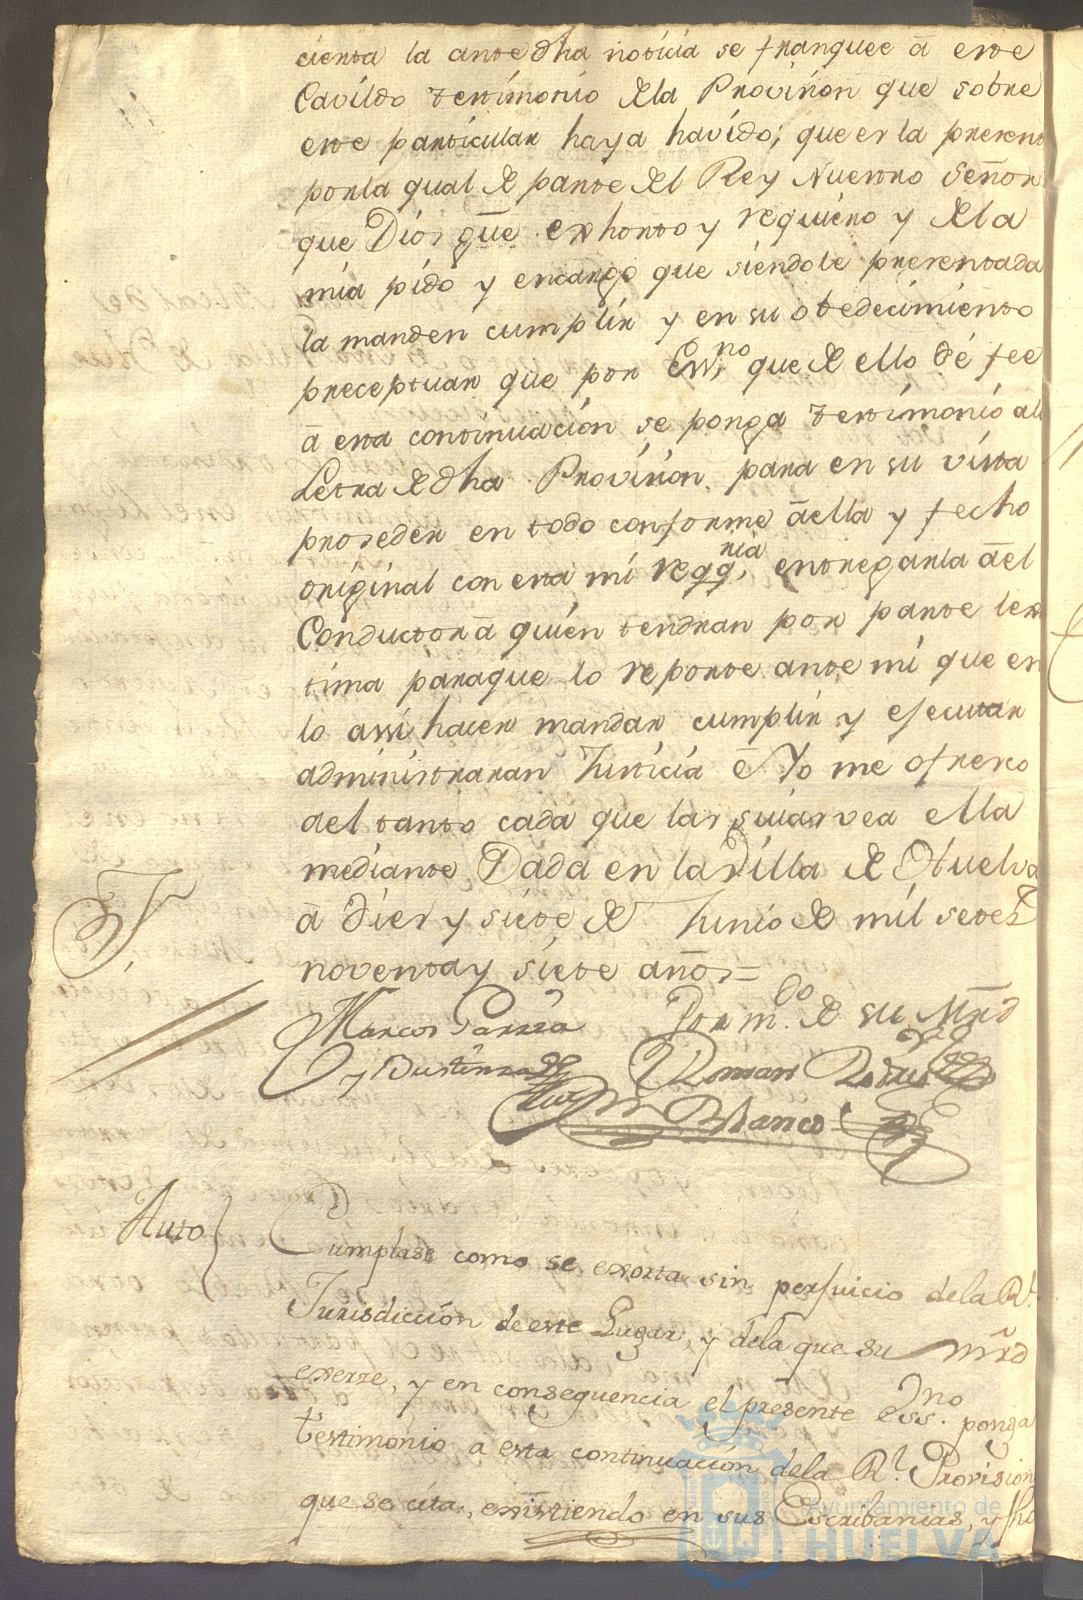 cierta la antedha noticia se franquee ā este
Cavildo testimonio de la Provision que sobre
este particular haya havido; que es la present
por la qual de parte del Rey Nuestro Señor
que Dios gue exhorto y requiero y de la
mia pido y encargo que siendole presentada
la manden cumplir y en su obedecimiento
preceptuar que por Essno que de ello dé fee
ā esta continuacion se ponga testimonio ala
Letra de dha Provision para en su vista
proseder en todo conforme āella y fecho
original con esta mi reqqria, entregarla āel
Conductor ā quien tendran por parte lexi
tima paraque lo reporte ante mi que en
lo assi hacer mandar cumplir y ejecutar
administraran Justicia é Yo me ofresco
del tanto cada que las suias vea ella
mediante Dada en la Villa de Huelva
ā dies y siete de Junio de mil setes
noventa y siete años=
Marcos Por mdo. de su Mrd
y Roman
Blanco
Auto
Cumplase como se exorta sin perjuicio dela Rl.
Jurisdiccion de este Lugar, y dela que su mrd
exerse, y en consequencia el presente Essno. ponga
testimonio a esta continuacion dela Rl. Provision
que se cita, existiendo en sus Escribanias, y fho
Ayuntamiento de
HUELVA